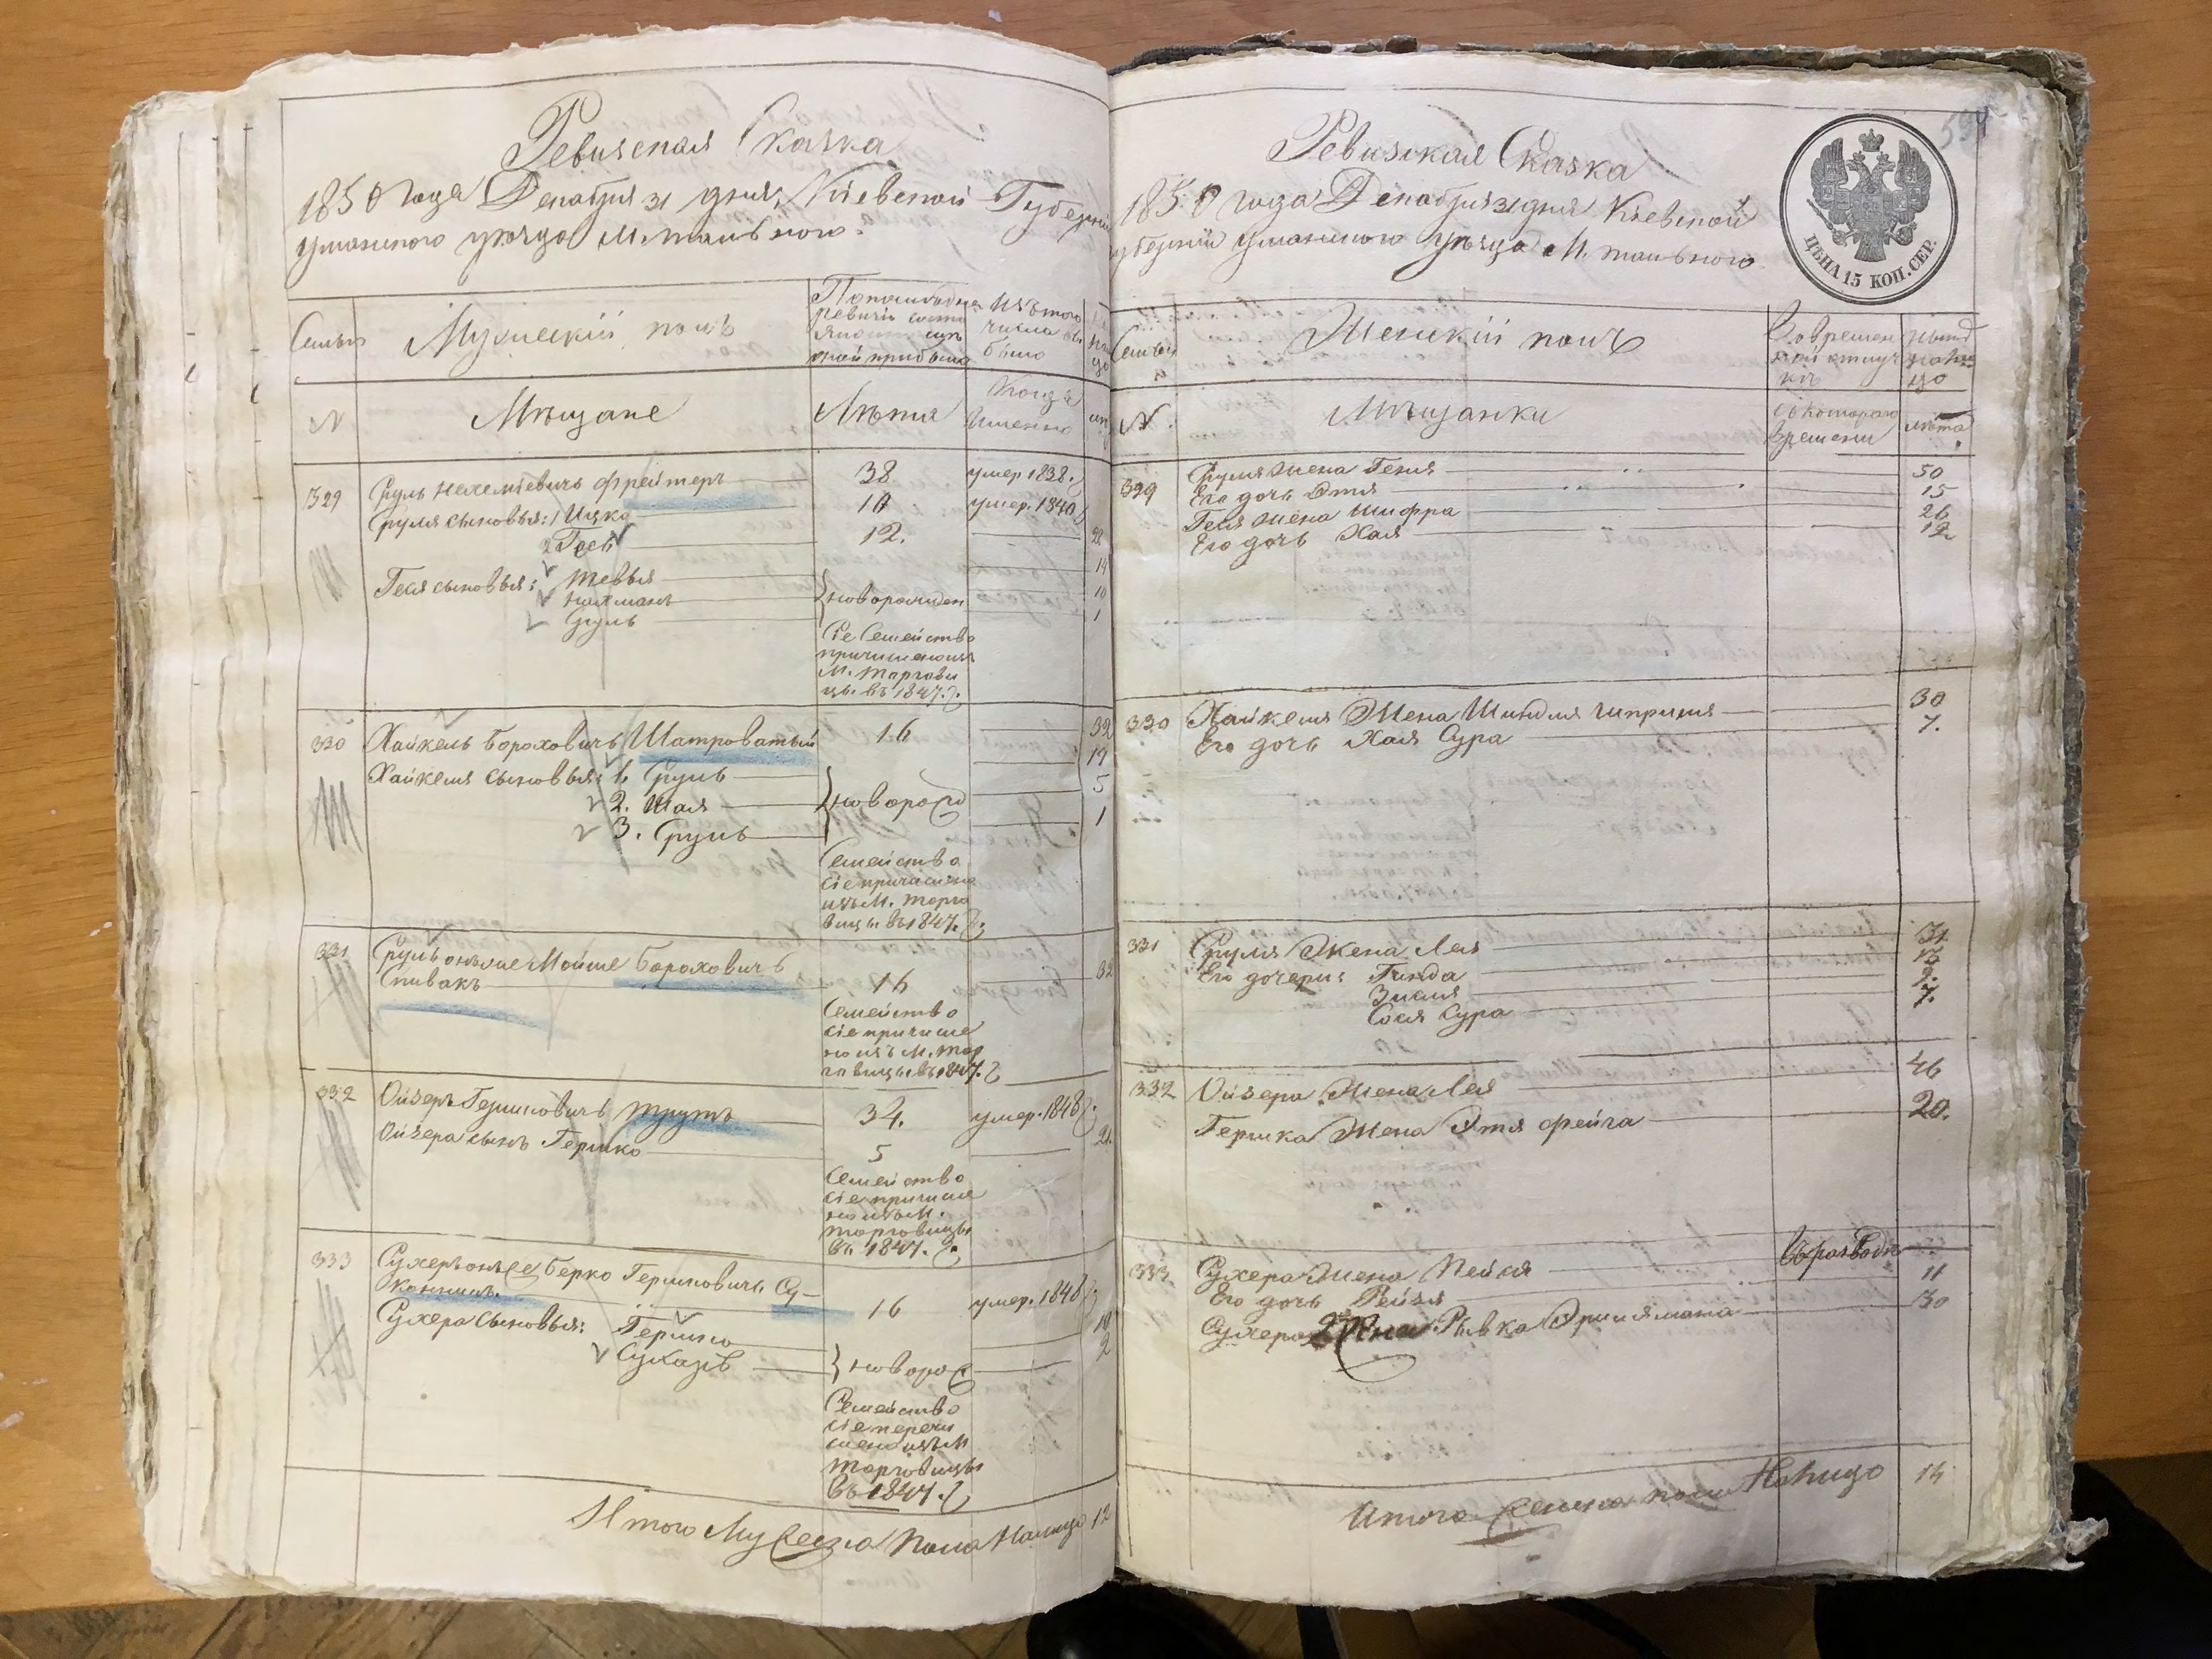 Ревизская Сказка
1850 года Декабря 31 дня, Кіевской Губерніи
Уманского уѣзда М. Тального.
Семьи
Мужескій полъ
Изъ того
числа вы
было
N
Мѣщане
Лѣта
Когда
Именно
329
Сруль Нехеміевичъ Фрейтеръ
38
умер 1838.
Сруля сыновья: 1 Ицко
10
умер. 1840
2 Гесь
12.
Геся сыновья: Тевья
14
Нахманъ
новорожден
10
Сруль
1
Сіе Семейство
причислено изъ
М. Торгови
цы въ 1847.
330
Хайкель Бороховичъ Шатроватый
16
32
Хайкеля сыновья: 1. Сруль
19
2. Шая
новорожд
5
3. Сруль
1
Семейство
сіе причислено
изъ М. Торго
вицы въ 1847.
331
Сруль онъ же Мойше Бороховичъ
Спивакъ
16
32
Семейство
сіе причисле
но изъ М. Тор
говицы въ 1847.
332
Ойзеръ Гершковичъ Трутъ
34.
умер. 1848
Ойзера сынъ Гершко
5
21.
Семейство
сіе причисле
но изъ М.
Торговицы
въ 1847.
333
Сухеръ онъ же Берко Гершковичъ Су-
16
умер. 1848
Сухера сыновья: Гершко
10
новорож
2
Семейство
сіе перечи
слено изъ М
Торговицы
въ 1847.
Итого Мужеска Пола Налицо 12
Ревизская Сказка
1850 года Декабря 31 дня Кіевской
Губерніи Уманского уѣзда М. Тального
ЦѢНА 15 КОП. СЕР.
Семьи
Женскій полъ
Во времен
ной отлуч
кѣ
Нынѣ
на ли
цо
N.
Мѣщанки
Съ котораго
времени
Лѣта
329
Сруля жена Геня
50
Его дочь Этя
15
Геся жена Шифра
26
Его дочь Хая
12
330
Хайкеля Жена Шиндля Шпринця
30
Его дочь Хая Сура
7.
331
Сруля Жена Лея
Его дочери: Гинда
Зисля
9.
Сося Сура
7.
332
Ойзера Жена Лея
46
Гершка Жена Этя Фейга
20.
333
Сухера Жена Пейся
въ разводѣ
Его дочь Рейзя
11
Сухера 2 Жена Рывка
30
Итого Женска пола Налицо 14